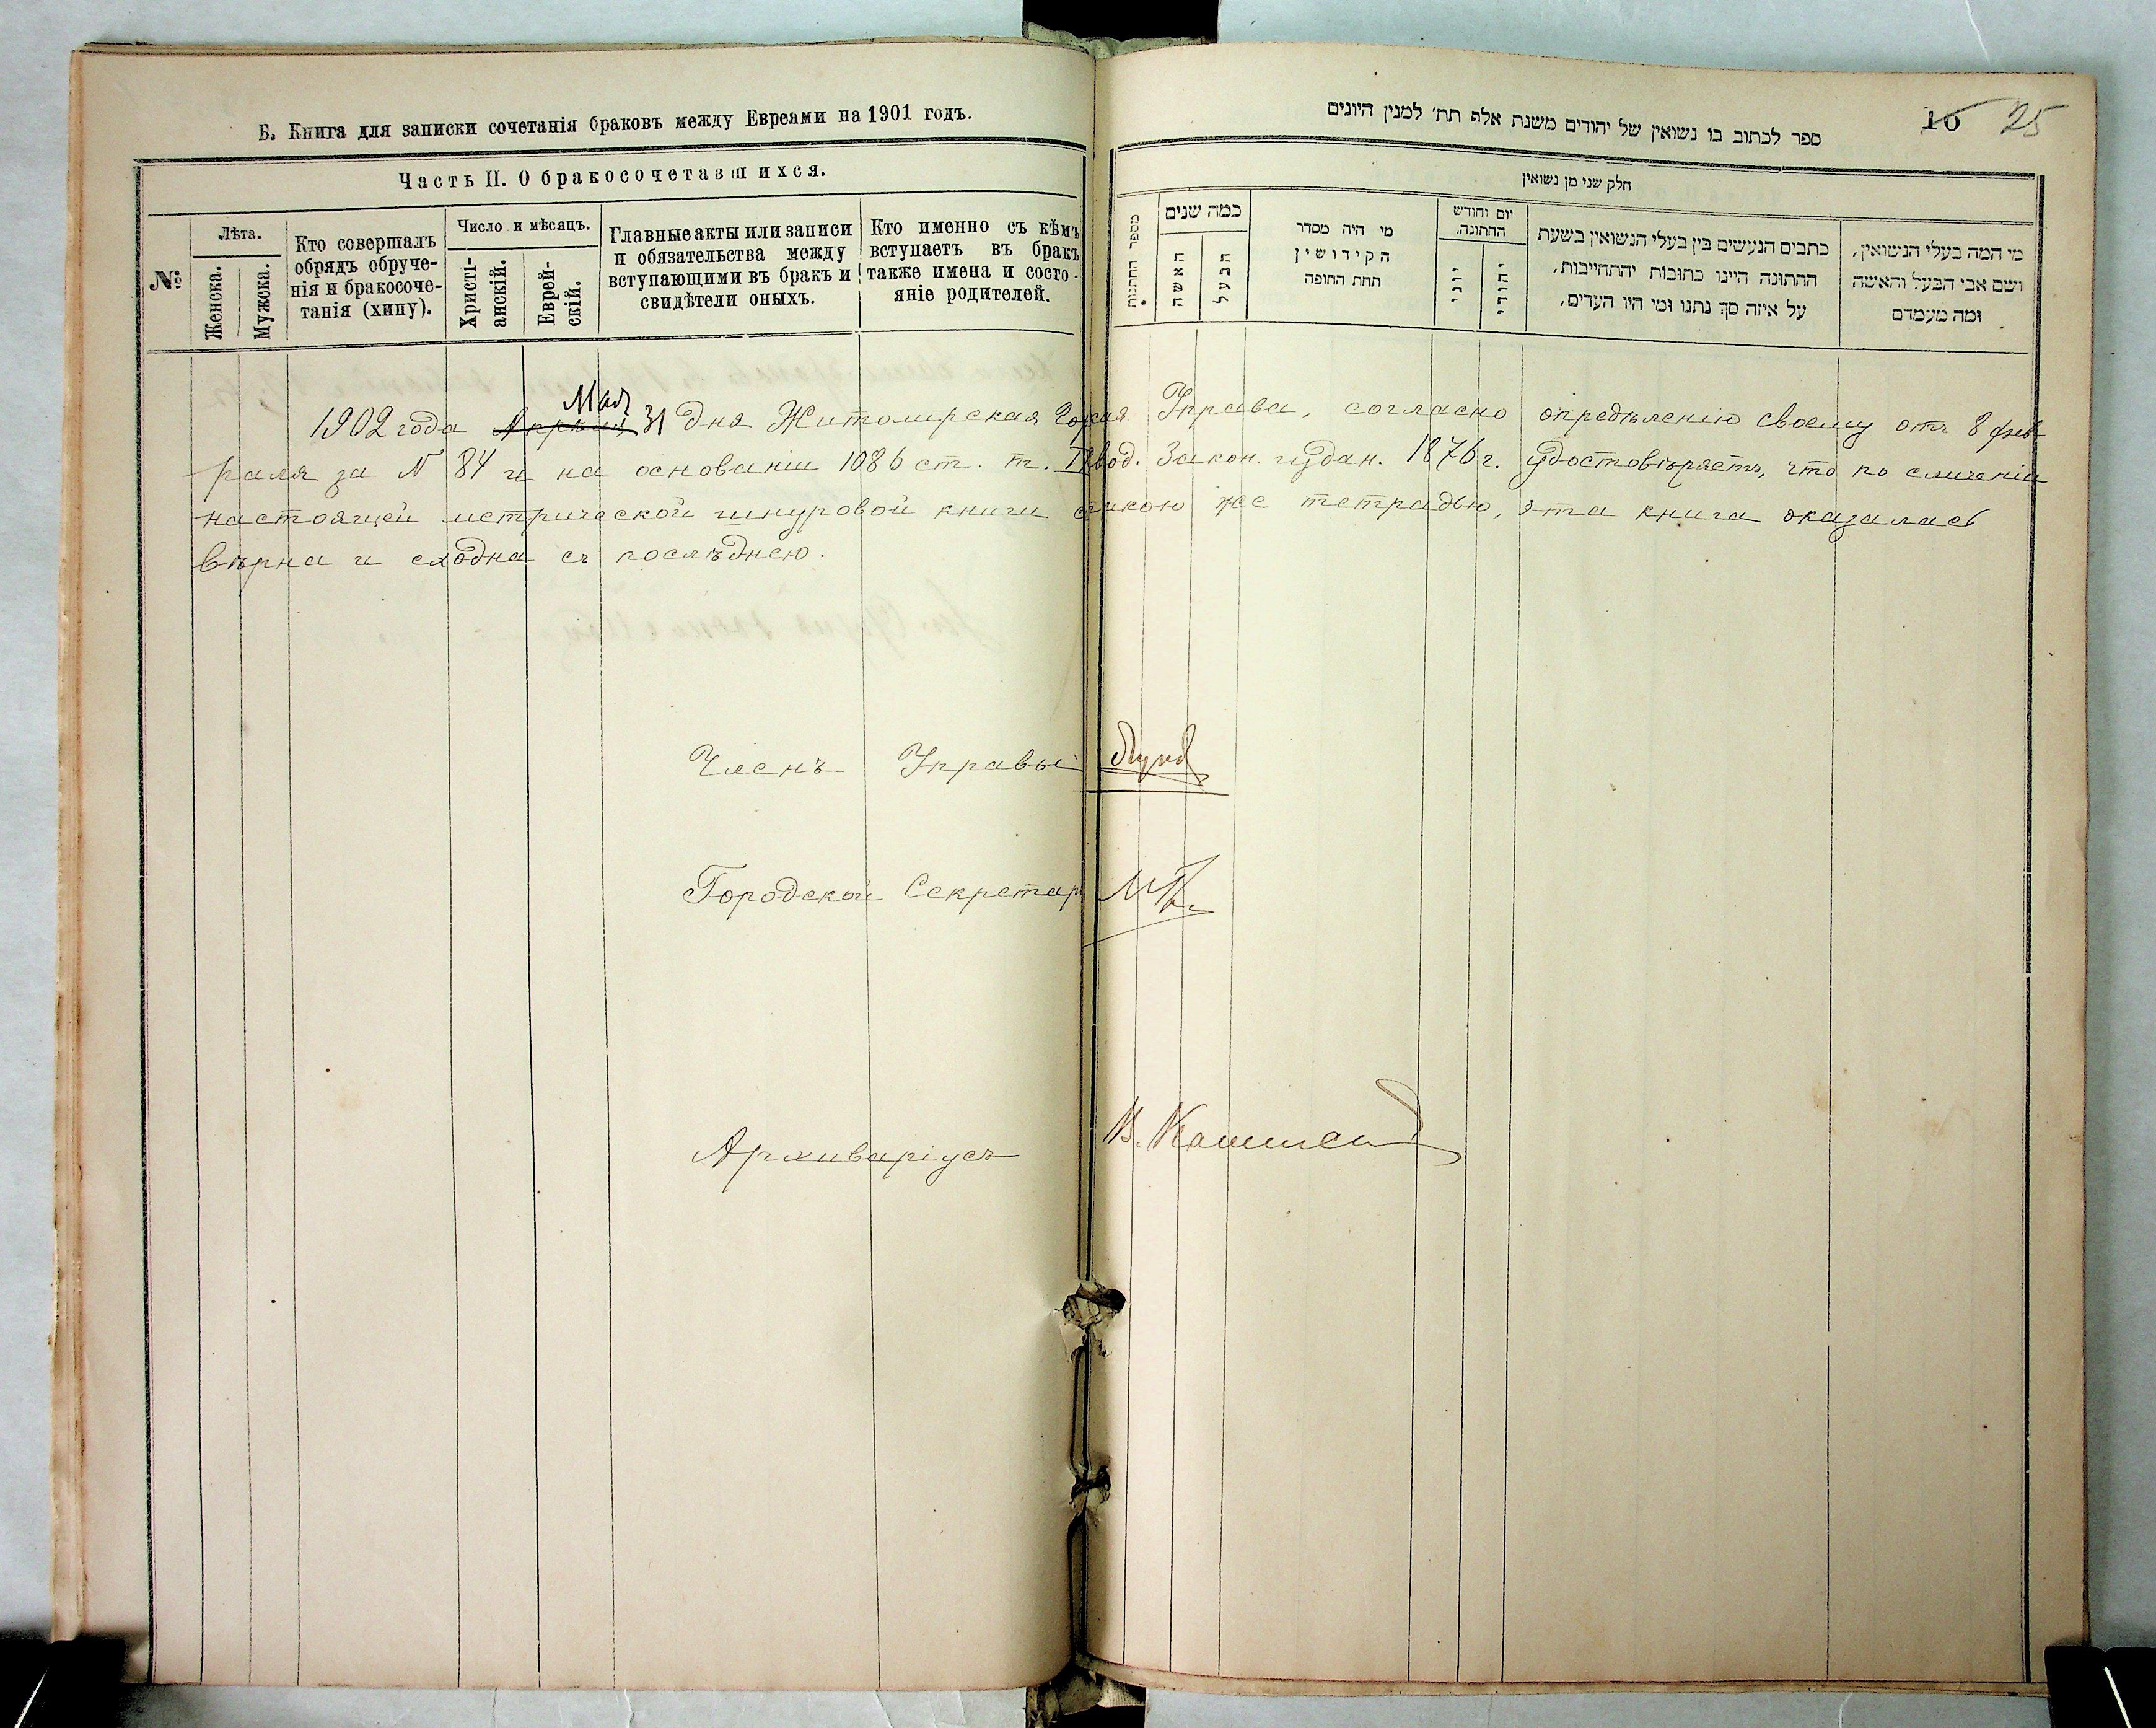 Б. Книга для записки сочетанія браковъ между Евреами на 1901 годъ.
Часть II. О бракосочетавшихся.
№
Лѣта.
Женска.
Мужска.
Кто совершалъ
обрядъ обруче-
нія и бракосоче-
танія (хипу).
Число и мѣсяцъ.
Христі-
анскій.
Еврей-
скій.
Главные акты или записи
и обязательства между
вступающими въ бракъ и
свидѣтели оныхъ.
Кто именно съ кѣмъ
вступаетъ въ бракъ
также имена и состо-
яніе родителей.
ספר לכתוב בו נשואין של יהודים משנת אלף תת׳ למנין היונים
16 25
חלק שני מן נשואין
מספר החתונות
כמה שנים
האשה
הבעל
מי היה מסדר
הקידושין
תחת החופה
יום וחודש
החתונה,
יוני
יהודי
כתבים הנעשים בין בעלי הנשואין בשעת
החתונה היינו כתובות יהתחייבות,
על איזה סך נתנו ומי היו העדים,
מי המה בעלי הנשואין,
ושם אבי הבעל והאשה
ומה מעמדם
Мая
1902 года Апрѣля 31 дня Житомирская Горская Управа, согласно опредѣленію своему отъ 8 фев-
раля за N 84 и на основаніи 1086 ст. т. IX Свод. Закон. издан. 1876 г. удостовѣряетъ, что по сличеніи
настоящей метрической шнуровой книги съ такою же тетрадью, эта книга оказалась
вѣрна и сходна съ послѣднею.
Членъ Управы
Городской Секретарь
Архиваріусъ В.